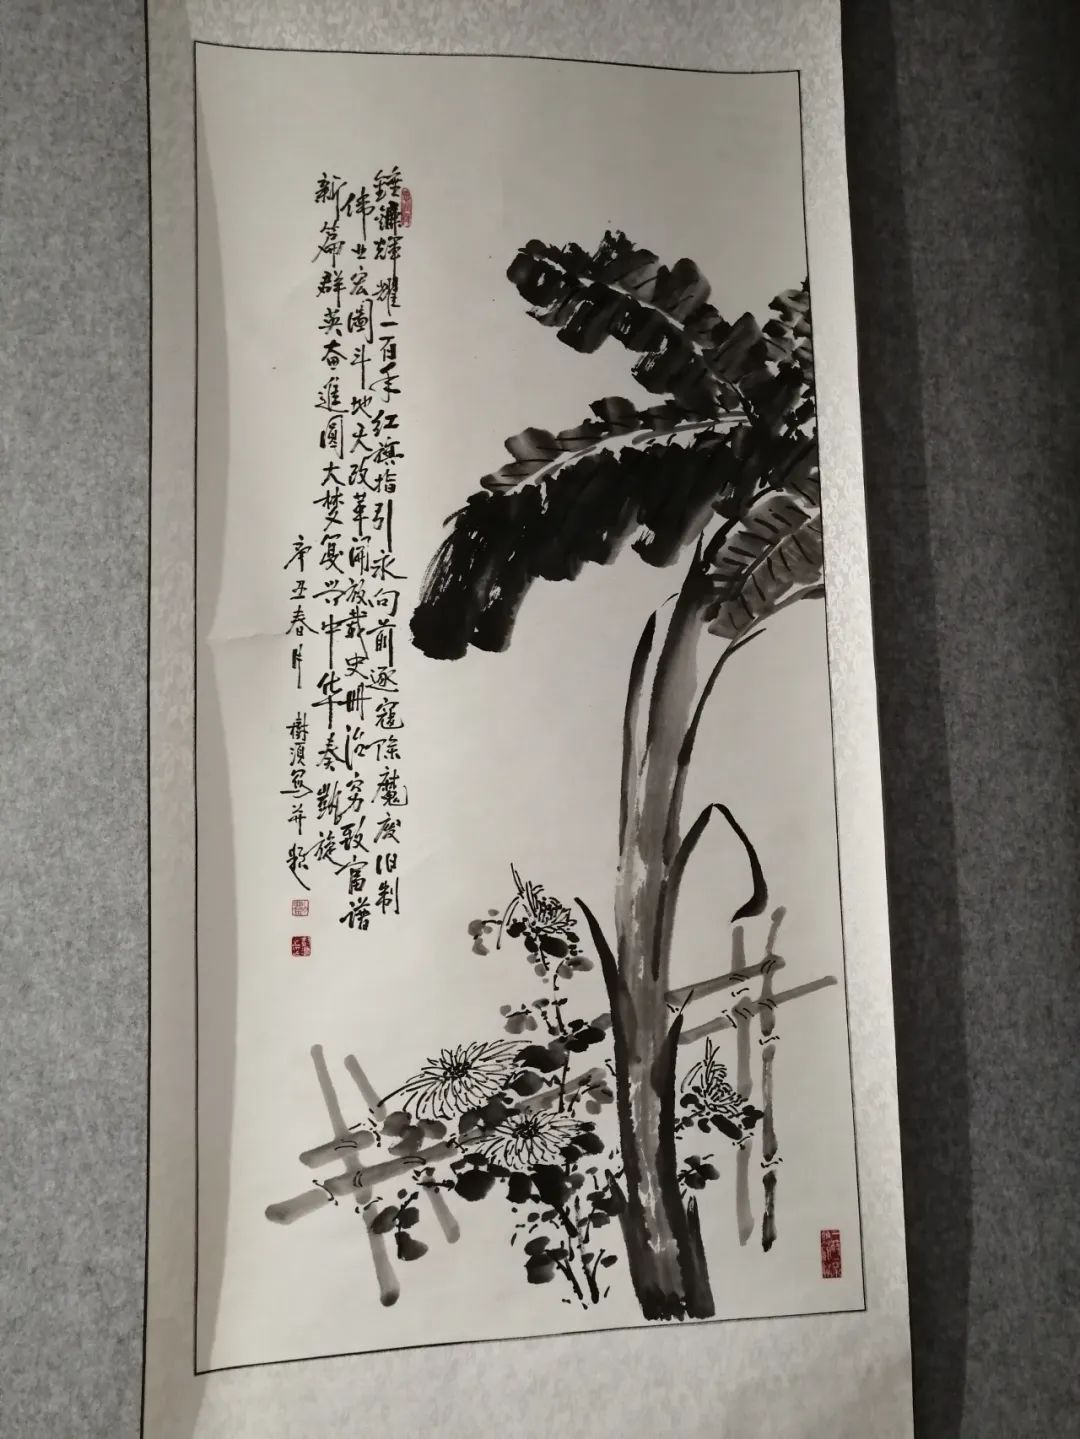 锤镰辉耀一百年红旗指引永向前逐寇除魔废旧制
伟业宏图斗地天改革开放载史册治穷致富谱
新篇群英奋进圆大梦复兴中华奏凯旋
辛丑春月
树须写并题